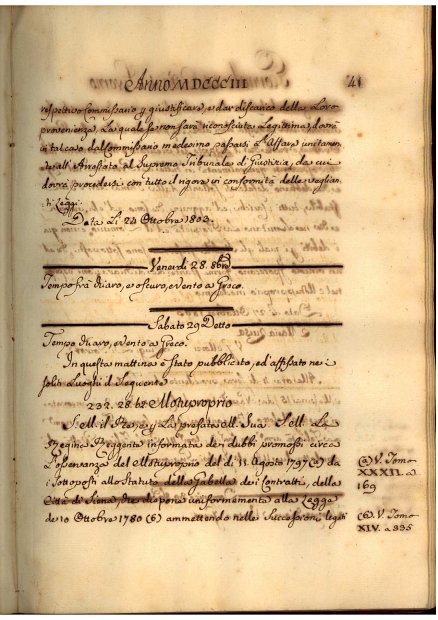 Anno MDCCCIII
41
respettivo Commissario p giustificare, e dar discarico della Loro
provenienza, La quale se non sarà riconosciuta Legittima, dovrà
in tal caso del Commissario medesimo passarsi L'Affare unitamen
te all'Arrestato al Supremo Tribunale di Giustizia, da cui
dovrà procedersi con tutto il rigore in conformità delle veglian
ti Leggi.
Data Li 24 Ottobre 1803.
Venerdì 28. 8bre
Tempo frà chiaro, e oscuro, e vento a Greco.
Sabato 29 Detto
Tempo chiaro, e vento a Greco.
In questa mattina è stato pubblicato, ed affissato nei
soliti Luoghi il seguente
Motuproprio
S. M. il Re, e p La prefata M. Sua S. M. La
Regina Reggente informata dei dubbi promossi circa
L'osservanza del Motuproprio del dì 11. Agosto 1797 (a) da
i sottoposti allo Statuto della Gabella dei Contratti, della
Città di Siena, che dispone uniformemente alla Legge
de 10 Ottobre 1780 (b) ammettendo nelle Successioni legati
(a) V. Tomo
XXXII. a
169
(b) V. Tomo
XIV. a 335